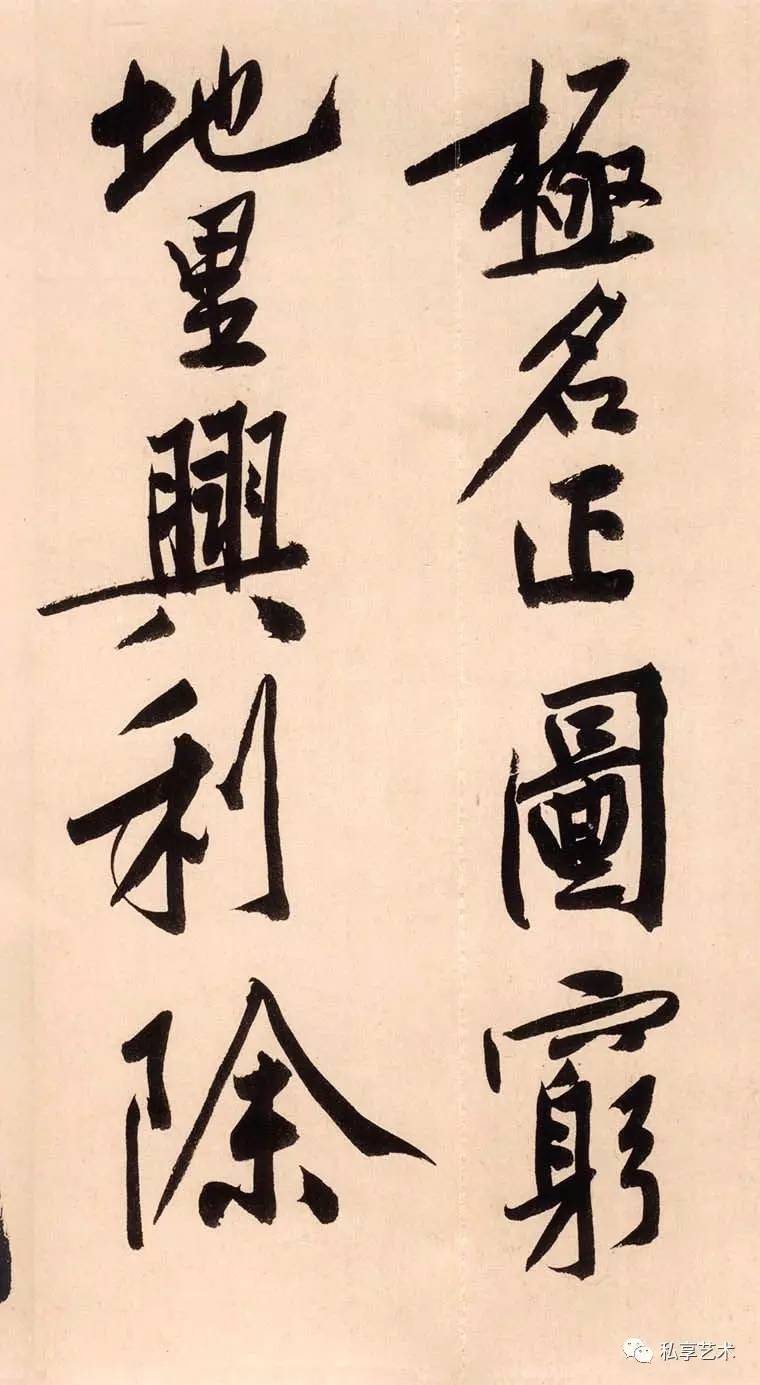 極名正圖窮
地里興利除
私享艺术